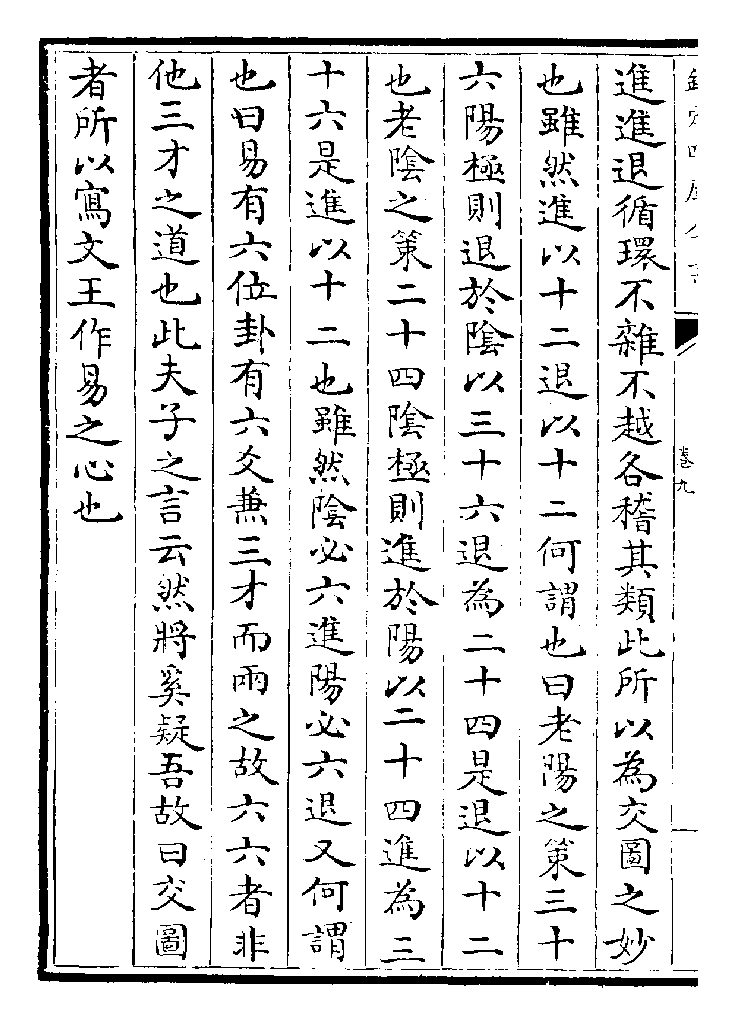 卷九
進進退循環不雜不越各稽其類此所以為交圖之妙
也雖然進以十二退以十二何謂也曰老陽之策三十
六陽極則退於陰以三十六退為二十四是退以十二
也老陰之策二十四陰極則進於陽以二十四進為三
十六是進以十二也雖然陰必六進陽必六退又何謂
也曰易有六位卦有六爻兼三才而兩之故六六者非
他三才之道也此夫子之言云然將奚疑吾故曰交圖
者所以寫文王作易之心也